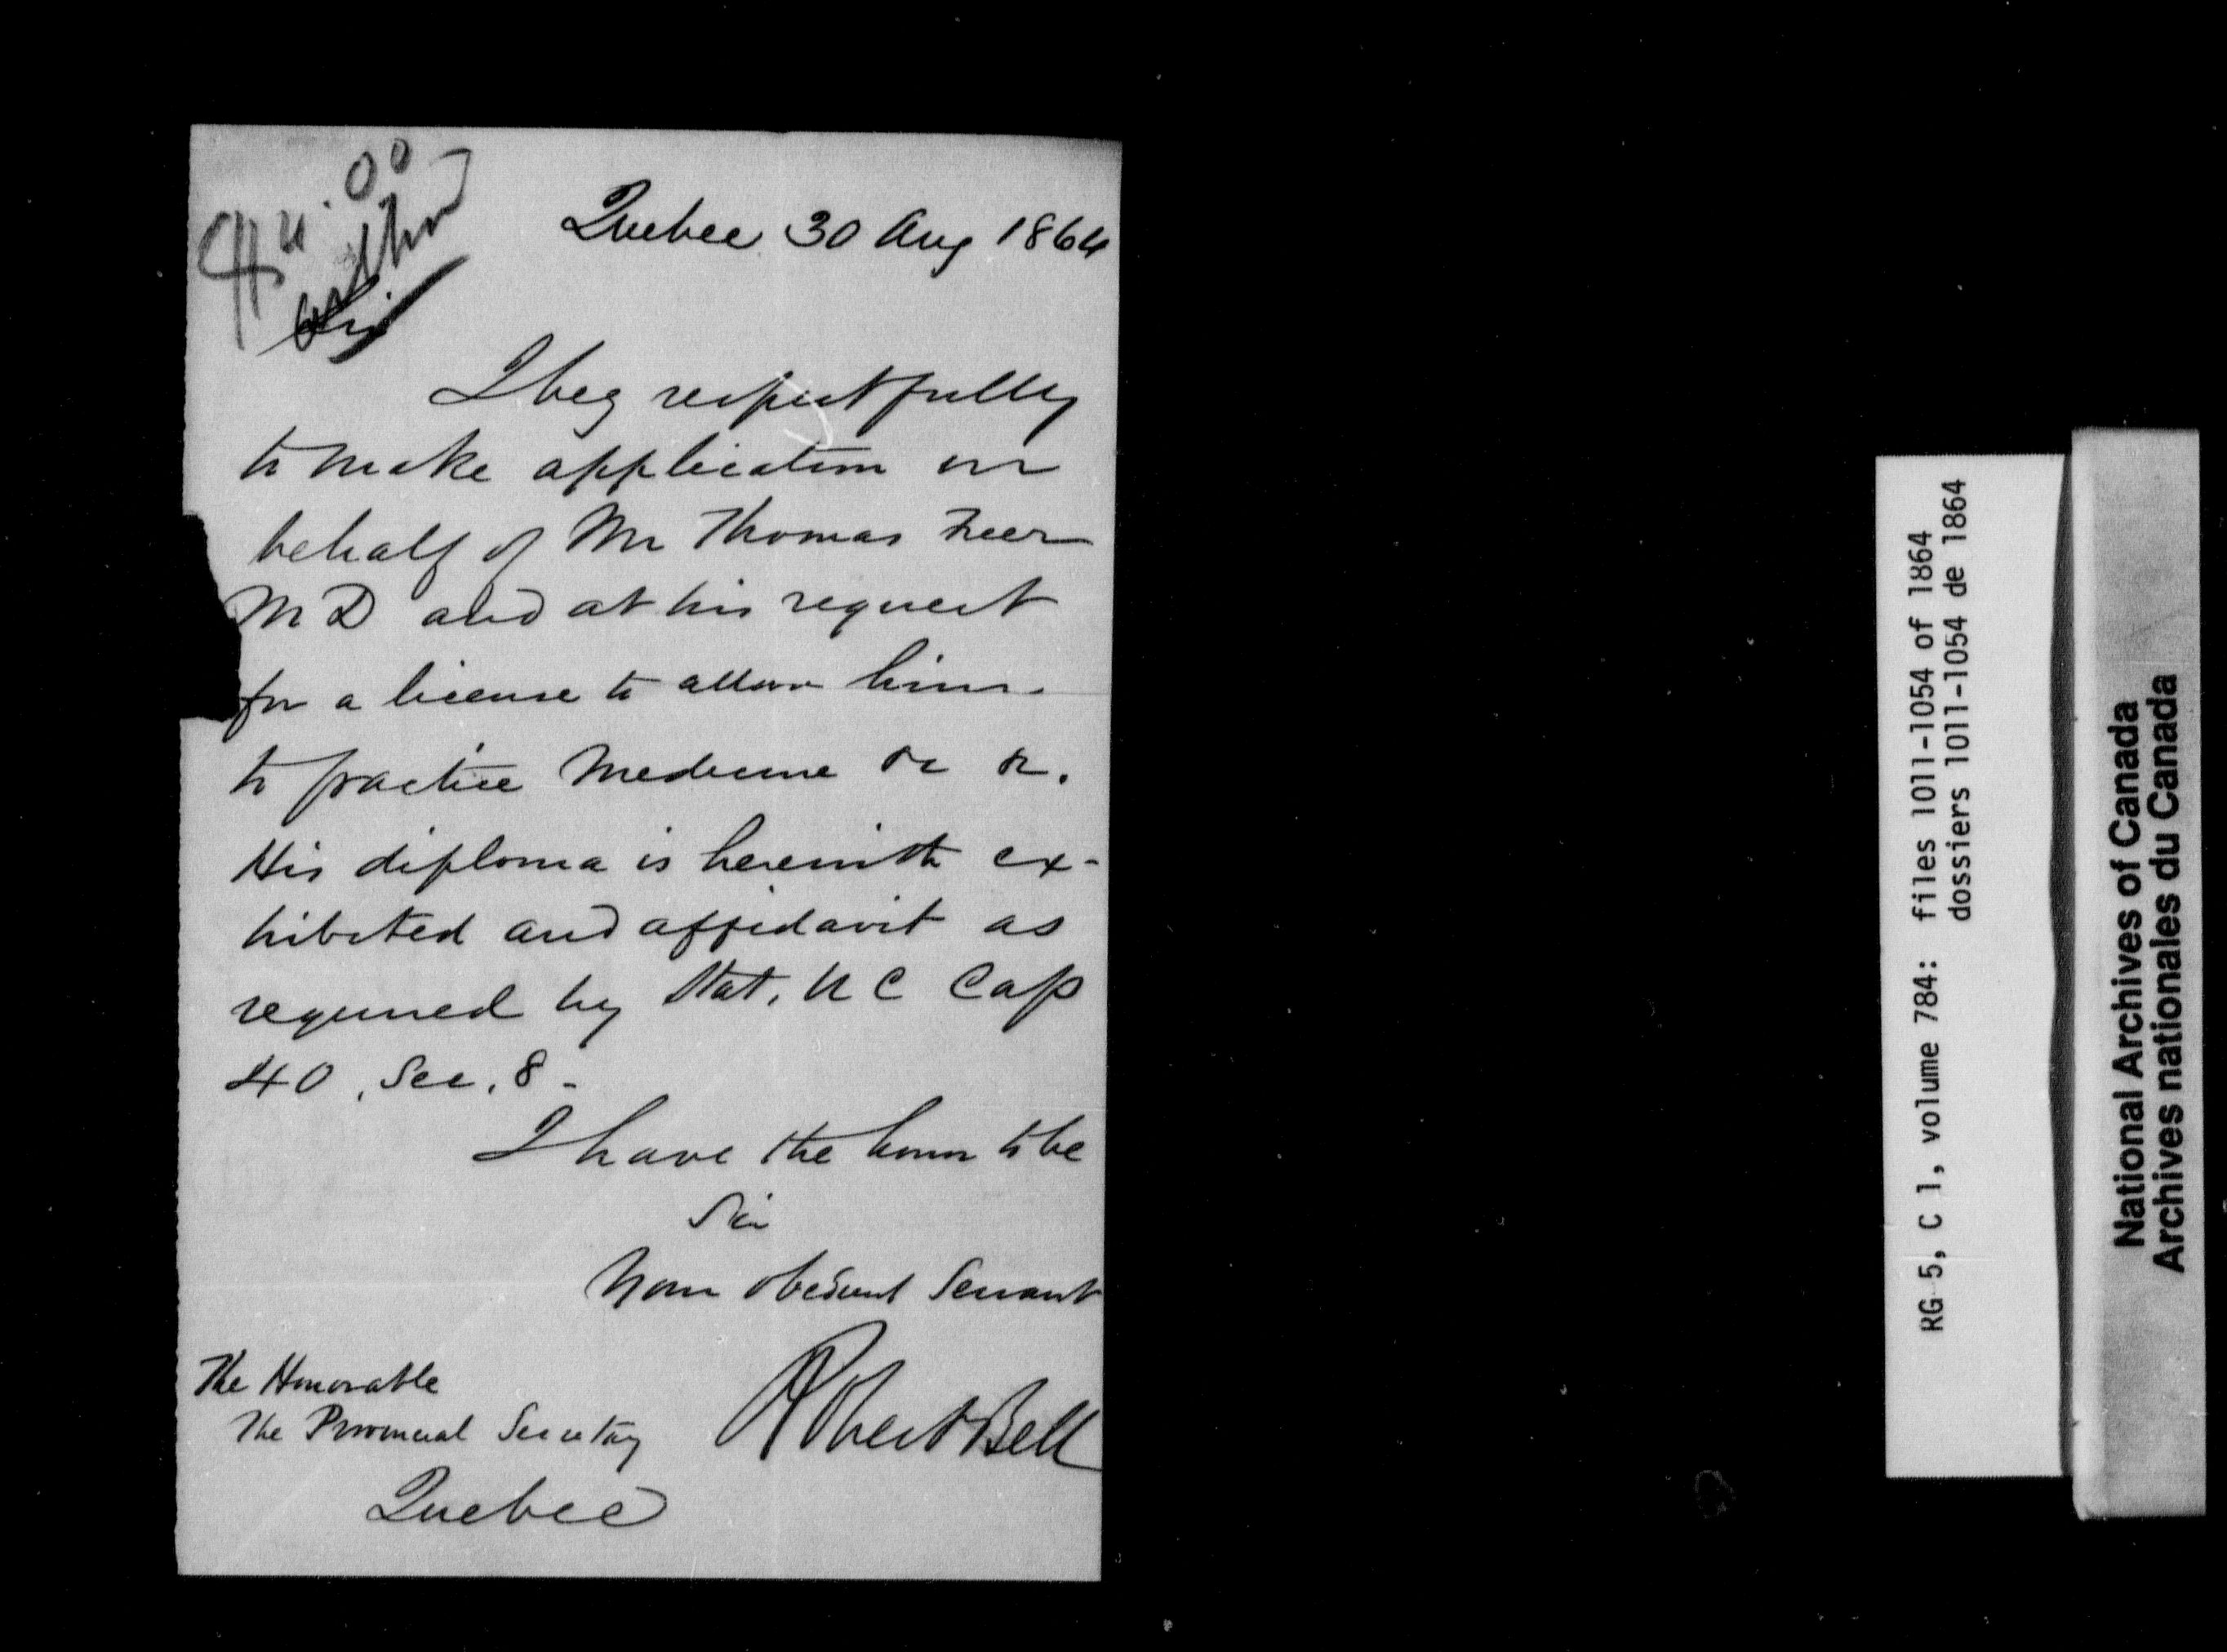 $4.00
Quebec 30 Aug 1864
Sir
I beg respectfully
to make application on
behalf of Mr Thomas
M D and at his request
for a license to allow him
to practice Medicine &c &c.
His diploma is herewith ex-
hibited and affidavit as
required by Stat. U C Cap
40, Sec. 8 -
I have the honor to be
Sir
Your obedient Servant
Robert Bell
The Honorable
The Provincial Secretary
Quebec
RG 5, C 1, volume 784: files 1011-1054 of 1864
dossiers 1011-1054 de 1864
National Archives of Canada
Archives nationales du Canada